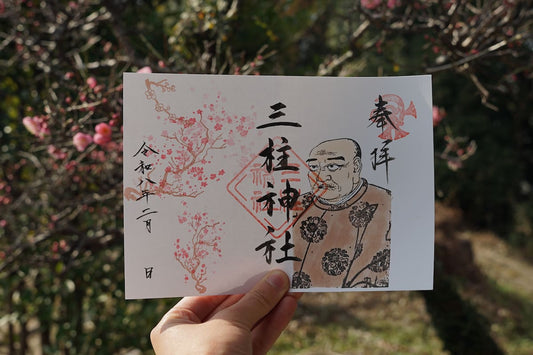 奉拝
三柱神社
令和八年二月　日